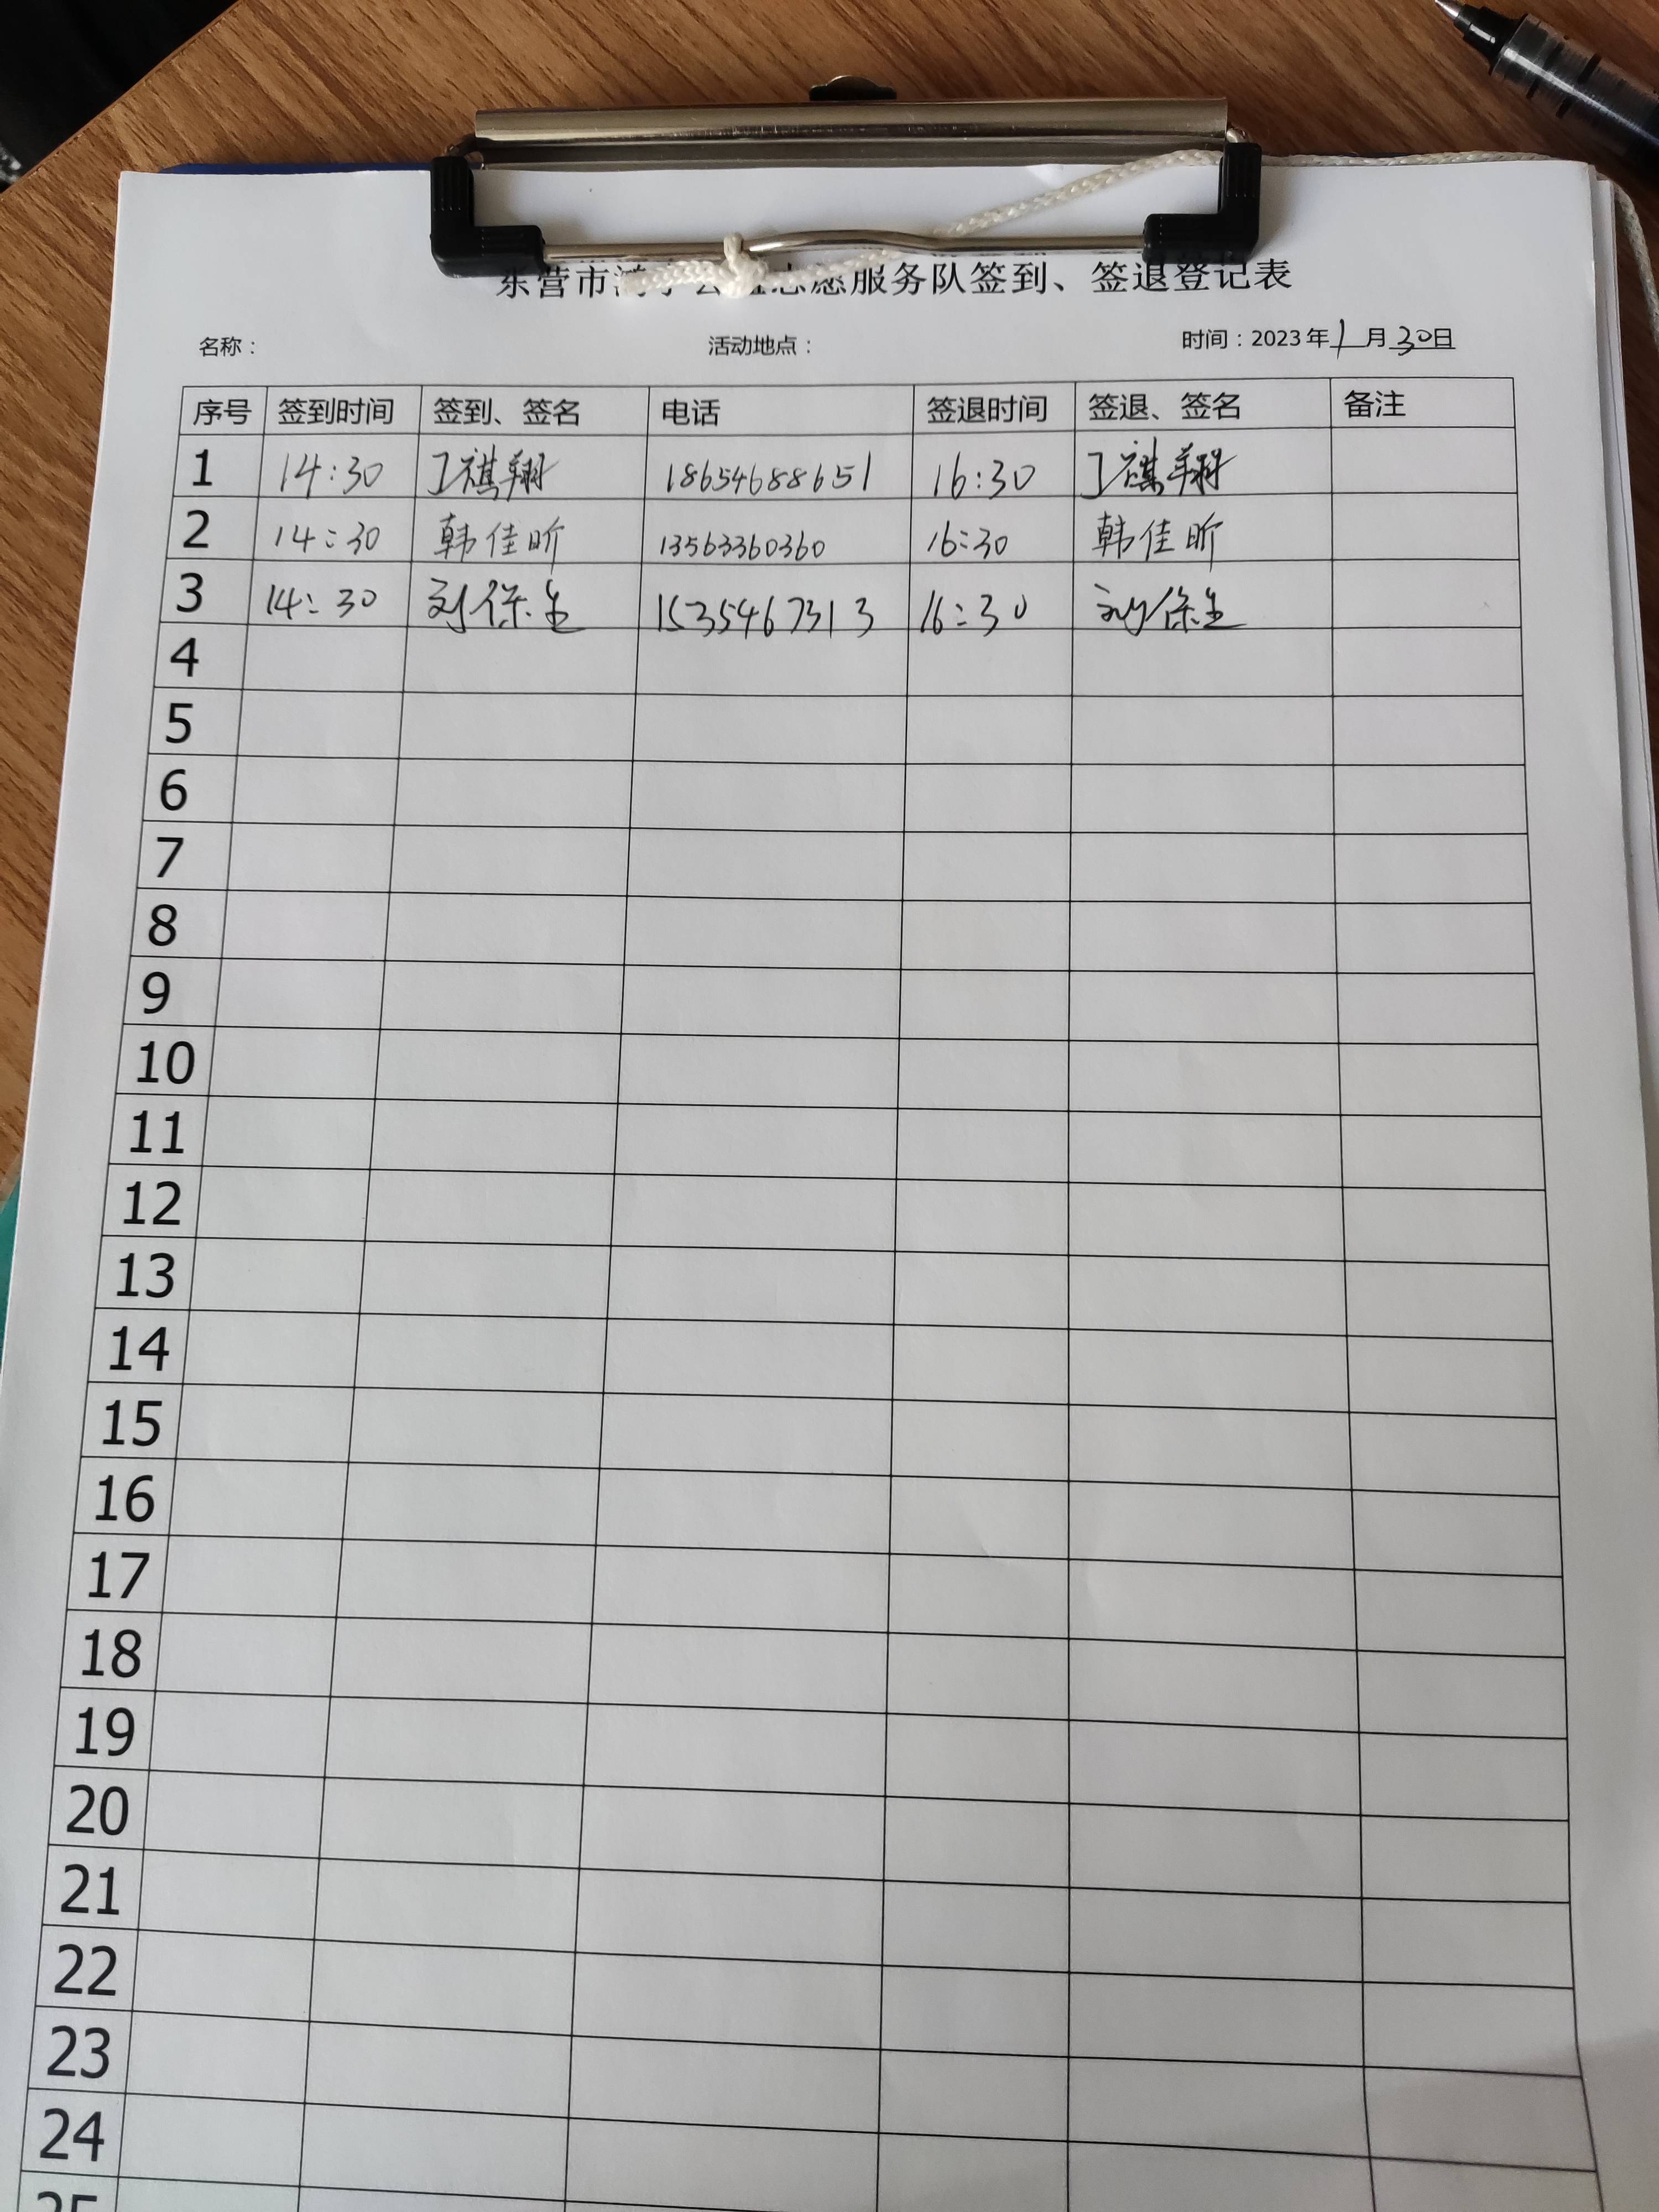 东营市 志愿服务队签到、签退登记表
名称： 活动地点： 时间：2023年1月30日
序号 签到时间 签到、签名 电话 签退时间 签退、签名 备注
1 14:30 丁祺翔 18654688651 16:30 丁祺翔
2 14:30 韩佳昕 13563360360 16:30 韩佳昕
3 14:30 刘保生 1535467313 16:30 刘保生
4
5
6
7
8
9
10
11
12
13
14
15
16
17
18
19
20
21
22
23
24
25